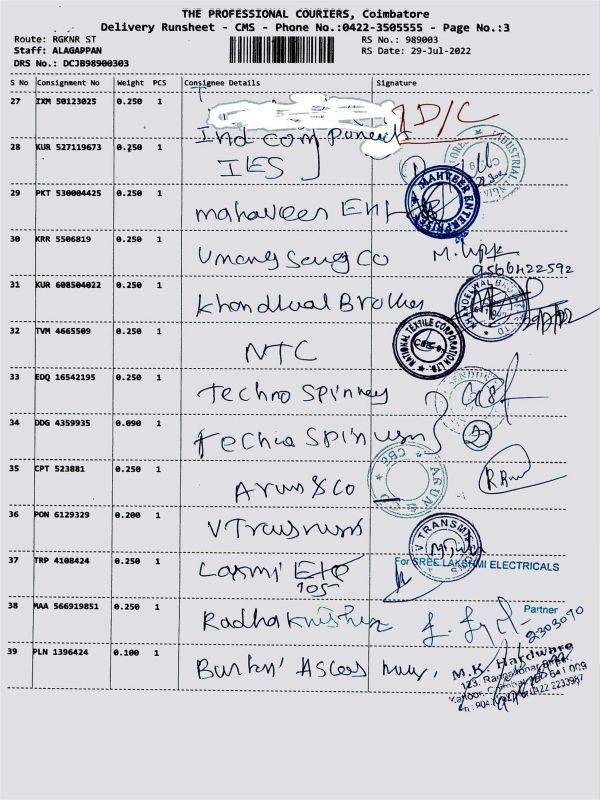 THE PROFESSIONAL COURIERS, Coimbatore
Delivery Runsheet - CMS - Phone No.:0422-3505555 - Page No.:3
Route: RGKNR ST RS No.: 989003
Staff: ALAGAPPAN RS Date: 29-Jul-2022
DRS No.: DCJB98900303
S No Consignment No Weight PCS Consignee Details Signature
27 IXM 50123025 0.250 1 D/C
Ind com
28 KUR 527119673 0.250 1 IES
29 PKT 530004425 0.250 1 mahaveer Ent
MAHAVEER ENTERPRISES
30 KRR 5506819 0.250 1 Umang Seng Co
9566422592
31 KUR 608504022 0.250 1 Khandelwal Brothers
KHANDELWAL BROTHERS
32 TVM 4665509 0.250 1 NTC
NATIONAL TEXTILE CORPORATION LTD.
CBE-9
33 EDQ 16542195 0.250 1 Techno Spinners
34 DDG 4359935 0.090 1 Techno Spin
35 CPT 523881 0.250 1 Arun & Co
ARUN
CBE
36 PON 6129329 0.200 1 V Trans
V TRANSM
37 TRP 4108424 0.250 1 Laxmi Ele
For SREE LAKSHMI ELECTRICALS
Partner
38 MAA 566919851 0.250 1 Radha Krishna
2303070
39 PLN 1396424 0.100 1
M.K. Hardware